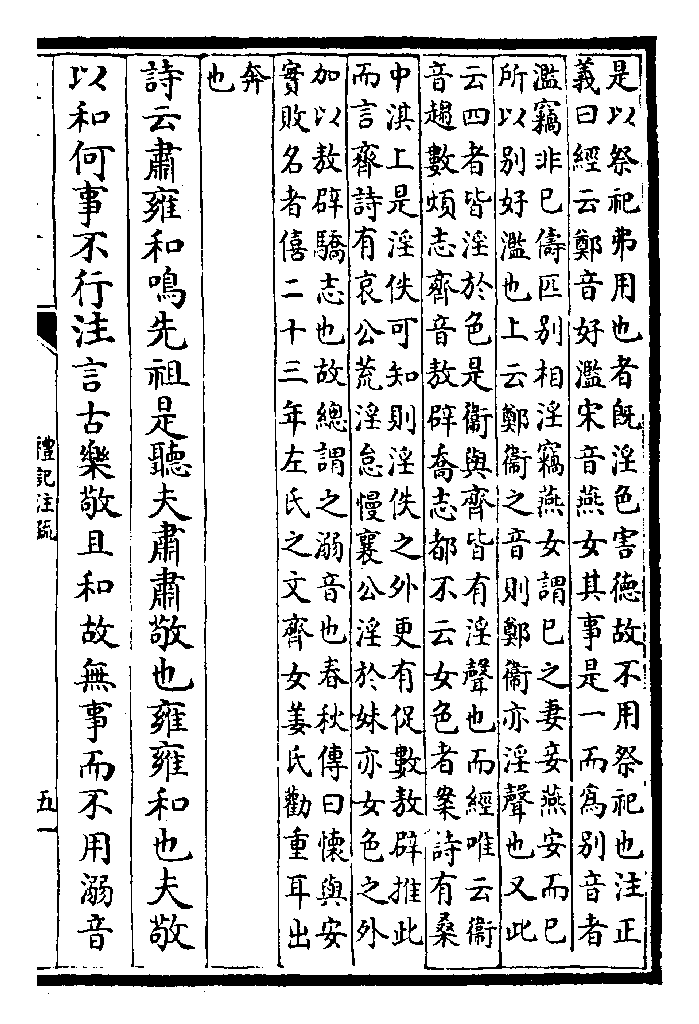 是以祭祀弗用也者旣淫色害德故不用祭祀也注正
義曰經云鄭音好濫宋音燕女其事是一而爲別音者
濫竊非已儔匹別相淫竊燕女謂已之妻妾燕安而已
所以別好濫也上云鄭衞之音則鄭衞亦淫聲也又此
云四者皆淫於色是衞與齊皆有淫聲也而經唯云衞
音趨數煩志齊音敖辟喬志都不云女色者案詩有桑
中淇上是淫佚可知則淫佚之外更有促數敖辟推此
而言齊詩有哀公荒淫怠慢襄公淫於妹亦女色之外
加以敖辟驕志也故總謂之溺音也春秋傳曰懷與安
實敗名者僖二十三年左氏之文齊女姜氏勸重耳出
奔
也
詩云肅雍和鳴先祖是聽夫肅肅敬也雍雍和也夫敬
以和何事不行注言古樂敬且和故無事而不用溺音
禮記注疏
五一